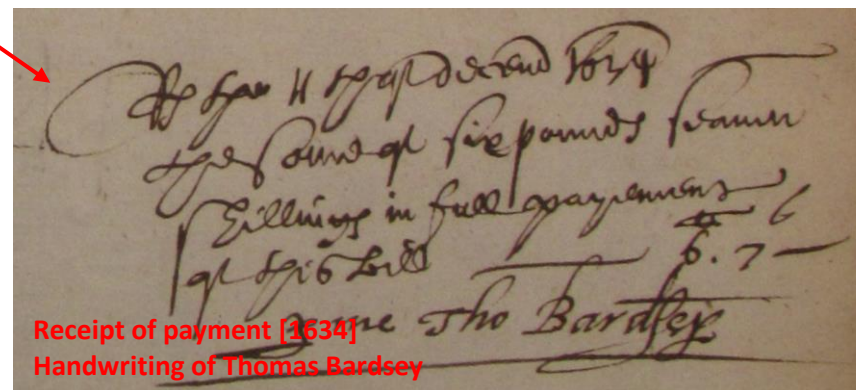 R the 11 th of decemb 1634
the Some of six pounds seaven
shillings in full payement
of this bill 6 . 7 —
me Tho Bardsey
Receipt of payment [1634]
Handwriting of Thomas Bardsey